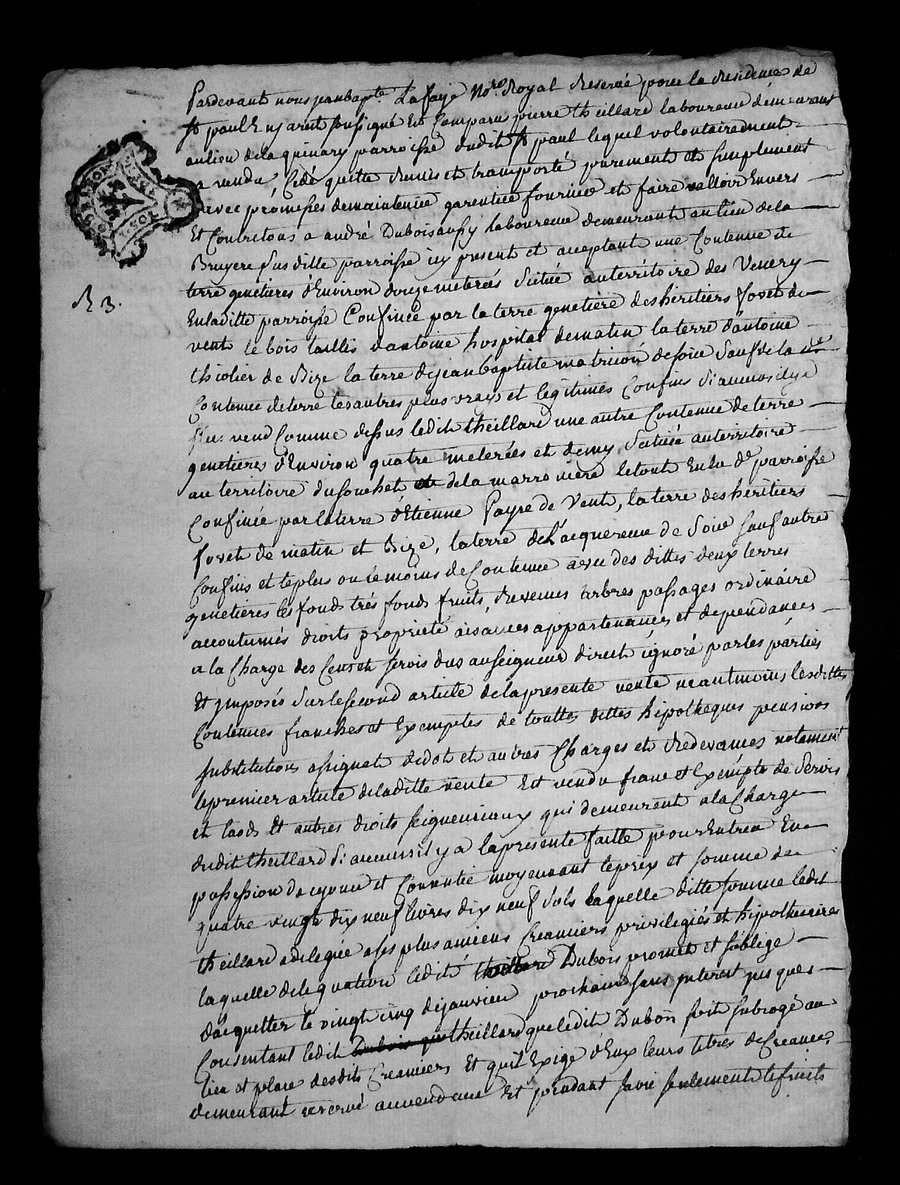 Pardevant nous jean bapte. Lafaye Nore Royal Reservé pour la Residence de
st paul En jarest soussigné Est Comparu pierre theillard laboureur demeurant
au lieu dela quinary parroisse dudit st paul lequel volontairement
a vendu, Cédé quitté Remis et transporté purement et simplement
avec promesses de maintenue garentie fournir et faire valloir Envers
Et Contre tous a andré Dubois aussy laboureur demeurant au lieu de la
Bruyere susditte parroisse icy present et acceptant une Contenue de
terre genetieres d'Environ douze meterés Situé au territoire des Venery
En laditte parroisse Confinée par la terre genetiére des héritiers forét de
vent le bois taillis d'antoine hospital de matin la terre d'antoine
thiolier de Bize la terre de jean baptiste matricon de soir Sauf de la de
Contenue de terre les autres plus vrays et legitimes Confins Si aucuns il y a
Plus vend Comme dessus ledit theillard une autre Contenue de terre
genetieres d'Environ quatre meterées et demy, Scituée au territoire
au territoire du souchet de la marroniere le tout En la de parroisse
Confinée par la terre d'Etienne Payre de Vent, la terre des héritiers
forét de matin et Bize, la terre de L'acquereur de Soir sauf autre
Confins et le plus ou le moins de Contenue avec des dittes deux terres
genetieres les fonds trés fonds fruits, Revenus arbres passages ordinaire
accoutumés droits proprieté aisances appartenances et dependances
a la Charge des Cens et servis dus au seigneur direct ignoré par les parties
Et imposés sur le second article de la presente vente neantmoins lesdittes
Contenues franches et Exemptes de touttes dettes hipotheques pensions
substitutions assignat de dot et autres Charges et Redevances notament
le premier article de laditte vente Est vendu franc et Exempte de Servis
et laods Et autres droits seigneuriaux qui demeurent a la Charge
dudit theillard Si aucuns il y a la presente faitte pour Entrer En
possession de ce jour et Convenue moyenant le prix et somme de
quatre vingt dix neuf livres dix neuf sols laquelle ditte somme ledit
theillard a delegué a ses plus anciens Creanciers privilegiés et hipothecaires
laquelle delegation ledit theillard Dubois promet et s'oblige
d'acquitter le vingt cinq de janvier prochain sans interet jusques
Consentant ledit Dubois que theillard que ledit Dubois soit subrogé au
lieu et place desdits Creanciers Et qu'il Exige d'Eux leurs titres de Creances
demeurant reservé au vendeur Et pendant sa vie seulement le fruits
R 3.